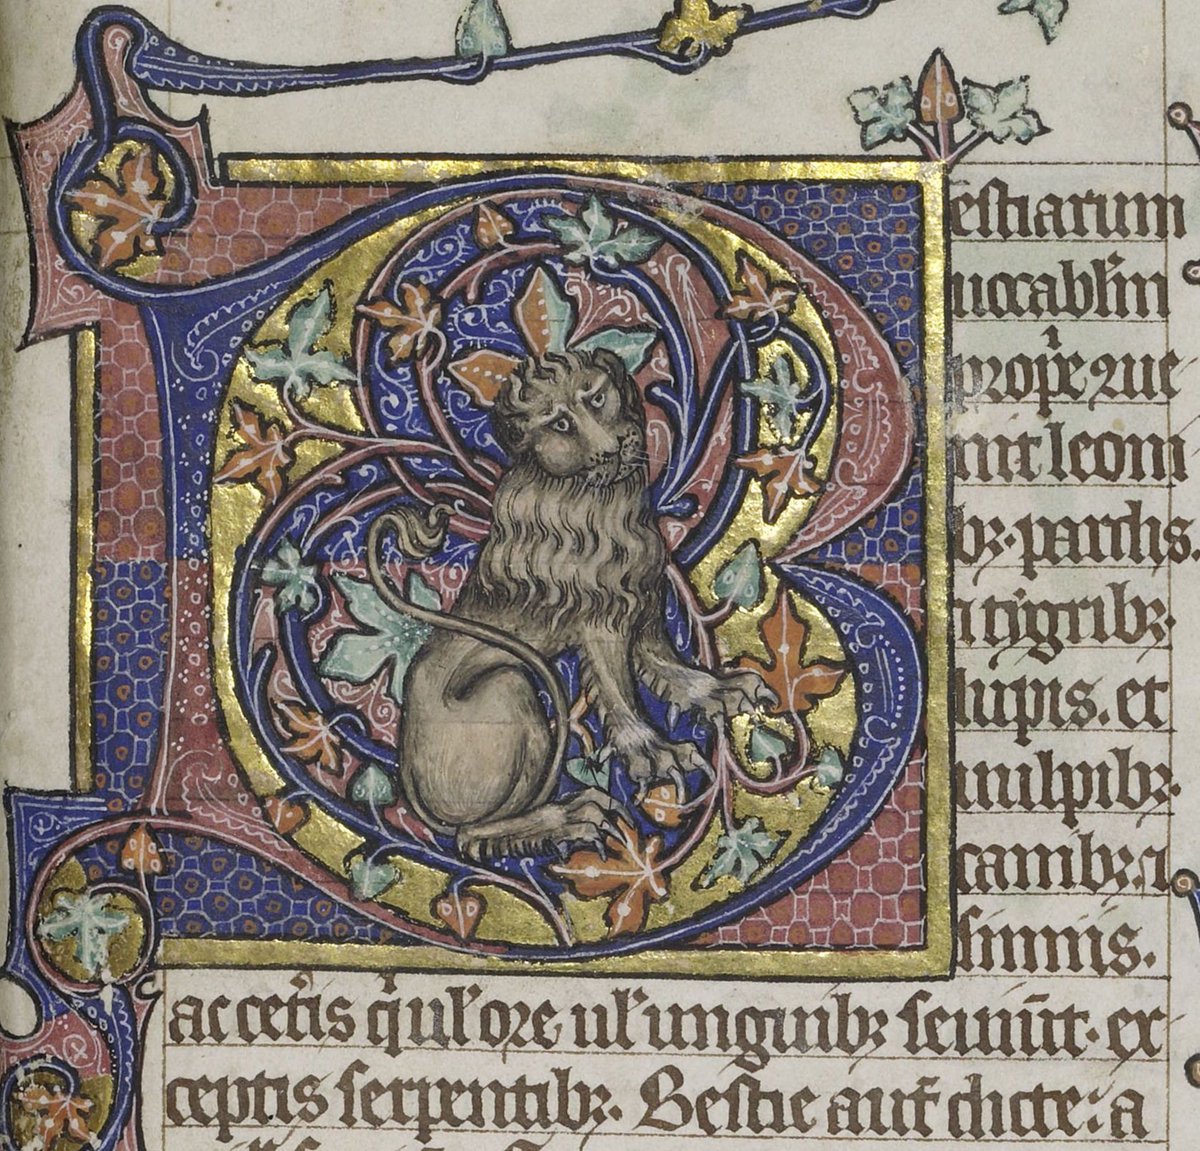 B estiarum
uocabl'm
prop͛e 9ue
nit leoni
bꝫ. pardis.
⁊ tẏgribꝫ.
lupis. et
uulpibꝫ.
canibꝫ. ⁊
simiis.
ac cet͛is q̇ ul' ore ul' unguibꝫ seuiūt. ex
ceptis serpentibꝫ. Bestie aut̄ dicte: a